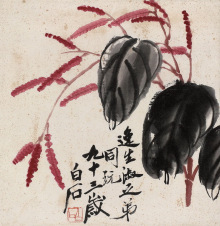 逸生淑文弟
同玩
九十三歲
白石